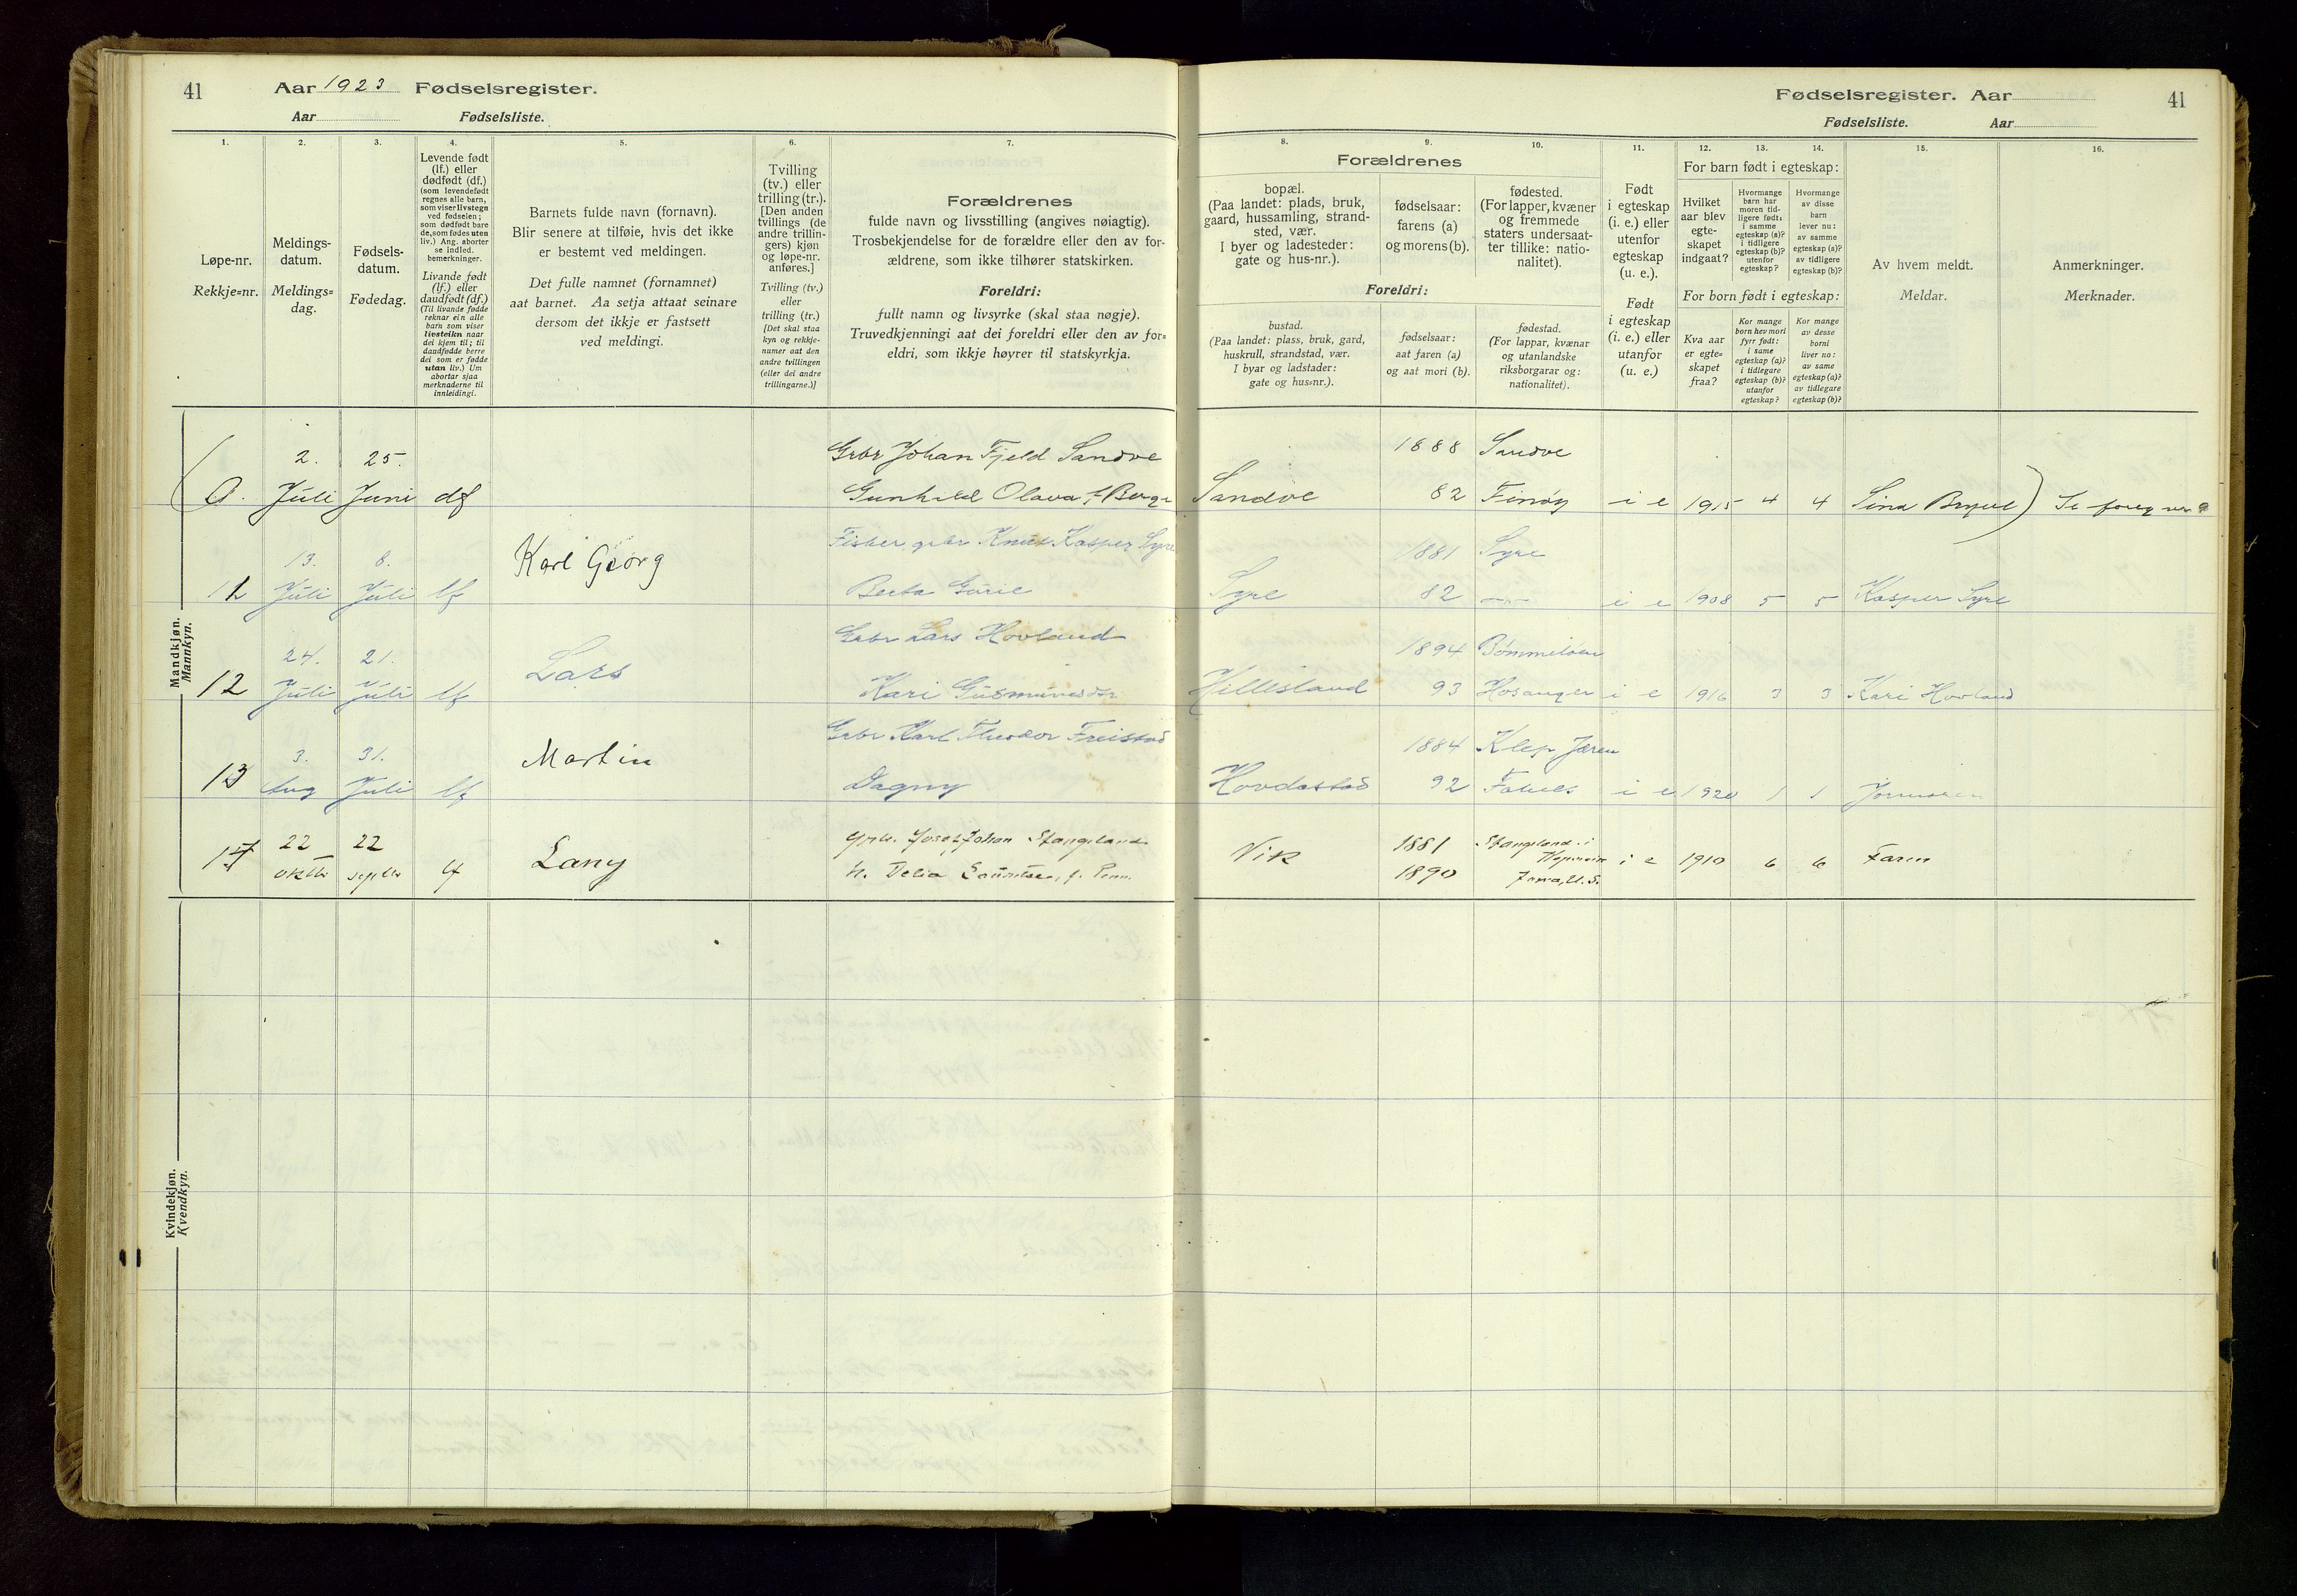 41
Aar 1923 Fødselsregister.
Aar Fødselsliste.
1.
Løpe-nr.
Rekkje=nr.
2.
Meldings-
datum.
Meldings=
dag.
3.
Fødsels-
datum.
Fødedag.
4.
Levende født
(lf.) eller
dødfødt (df.)
(som levendefødt
regnes alle barn,
som viser livstegn
ved fødselen;
som dødfødt bare
de, som fødes uten
liv.) Ang. aborter
se indled.
bemerkninger.
Livande født
(lf.) eller
daudfødt (df.)
(Til livande fødde
reknar ein alle
barn som viser
livsteikn naar
dei kjem til; til
daudfødde berre
dei som er fødde
utan liv.) Um
abortar sjaa
merknaderne til
innleidingi.
5.
Barnets fulde navn (fornavn).
Blir senere at tilføie, hvis det ikke
er bestemt ved meldingen.
Det fulle namnet (fornamnet)
aat barnet. Aa setja attaat seinare
dersom det ikkje er fastsett
ved meldingi.
6.
Tvilling
(tv.) eller
trilling (tr.).
[Den anden
tvillings (de
andre trillin-
gers) kjøn
og løpe-nr.
anføres.]
Tvilling (tv.)
eller
trilling (tr.)
[Det skal staa
kyn og rekkje-
numer aat den
andre tvillingen
(eller dei andre
trillingarne.)]
7.
Forældrenes
fulde navn og livsstilling (angives nøiagtig).
Trosbekjendelse for de forældre eller den av for-
ældrene, som ikke tilhører statskirken.
Foreldri:
fullt namn og livsyrke (skal staa nøgje).
Truvedkjenningi aat dei foreldri eller den av for=
eldri, som ikkje høyrer til statskyrkja.
Mandkjøn.
Mannkyn.
2. 25. Grbr Johan Fjeld Sandve
0. Juli Juni df Gunhild Olava f. Berge
13. 8. Karl Georg Fisker, grbr Knut Kasper Syre
11 Juli Juli lf Berta Gurie
24. 21. Lars Grbr Lars Hovland
12 Juli Juli lf Kari
3. 31. Martin Grbr Karl Theodor Freistad
13 Aug Juli lf Dagny
22 22 Lany Johan Stangeland
oktbr septbr lf H. Delia
Kvindekjøn.
Kvendkyn.
Fødselsregister. Aar
41
Fødselsliste. Aar
8.
Forældrenes
bopæl.
(Paa landet: plads, bruk,
gaard, hussamling, strand-
sted, vær.
I byer og ladesteder:
gate og hus-nr.).
Foreldri:
bustad.
(Paa landet: plass, bruk, gard,
huskrull, strandstad, vær.
I byar og ladstader:
gate og hus=nr.).
9.
fødselsaar:
farens (a)
og morens (b).
fødselsaar:
aat faren (a)
og aat mori (b).
10.
fødested.
(For lapper, kvæner
og fremmede
staters undersaat-
ter tillike: natio-
nalitet).
fødestad.
(For lappar, kvænar
og utanlandske
riksborgarar og:
nationalitet).
11.
Født
i egteskap
(i. e.) eller
utenfor
egteskap
(u. e.).
Født
i egteskap
(i. e.) eller
utanfor
(u. e.)
12. 13. 14.
For barn født i egteskap:
Hvilket
aar blev
egte-
skapet
indgaat?
Hvormange
barn har
moren tid-
ligere født:
i samme
egteskap (a)?
i tidligere
egteskap (b)?
utenfor
egteskap?
Hvormange
av disse
barn
lever nu:
av samme
egteskap (a)?
av tidligere
egteskap (b)?
For born født i egteskap:
Kva aar
er egte=
skapet
fraa?
Kor mange
born hev mori
fyrr født:
i same
egteskap (a)?
i tidlegare
egteskap (b)?
utanfor
egteskap?
Kor mange
av desse
borni
liver no:
av same
egteskap (a)?
av tidlegare
egteskap (b)?
15.
Av hvem meldt.
Meldar.
16.
Anmerkninger.
Merknader.
1888 Sandve
Sandve 82 Finnøy i e 1915 4 4 Sina
1881 Syre
Syre 82 i e 1908 5 5 Kasper Syre
1894 Bømmeløen
Hillesland 93 Hosanger i e 1916 3 3 Kari Hovland
1884 Klep Jæren
Hovdastad 92 i e 1920 1 1 Jormoren
Vik 1881 Stangeland i
1890 i e 1910 6 6 Faren